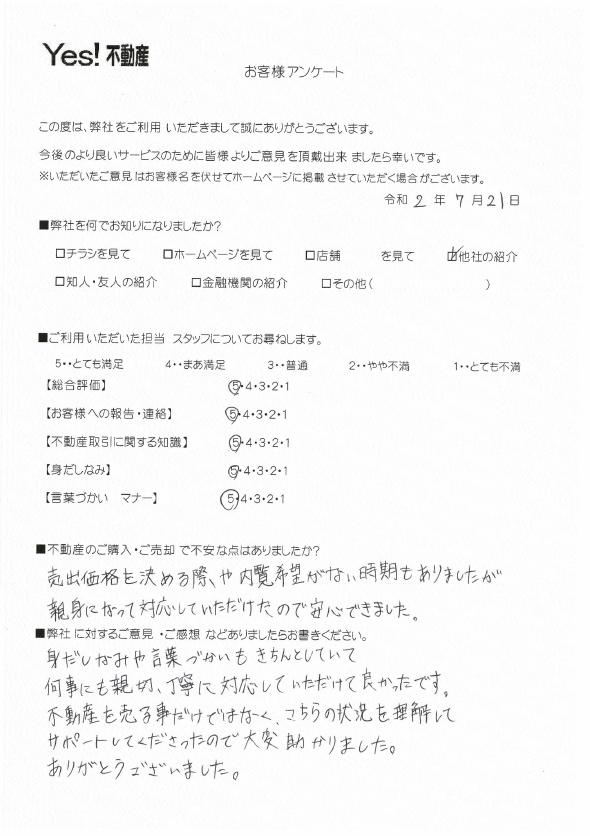 Yes!不動産
お客様アンケート
この度は、弊社をご利用 いただきまして誠にありがとうございます。
今後のより良いサービスのために皆様 よりご意見を頂戴出来 ましたら幸いです。
※いただいたご意見 はお客様名を伏せてホームページに掲載 させていただく場合がございます。
令和 2 年 7 月 21 日
■弊社を何でお知りになりましたか?
□チラシを見て □ホームページを見て □店舗 を見て ☑他社の紹介
□知人・友人の紹介 □金融機関の紹介 □その他( )
■ご利用いただいた担当 スタッフについてお尋ねします。
5・・とても満足 4・・まあ満足 3・・普通 2・・やや不満 1・・とても不満
【総合評価】 ⑤・4・3・2・1
【お客様への報告・連絡】 ⑤・4・3・2・1
【不動産取引に関する知識】 ⑤・4・3・2・1
【身だしなみ】 ⑤・4・3・2・1
【言葉づかい マナー】 ⑤・4・3・2・1
■不動産のご購入・ご売却 で不安な点はありましたか?
売出価格を決める際、や内覧希望がない時期もありましたが
親身になって対応していただけたので安心できました。
■弊社 に対するご意見 ・ご感想 などありましたらお書きください。
身だしなみや言葉づかいもきちんとしていて
何事にも親切、丁寧に対応していただけて良かったです。
不動産を売る事だけではなく、こちらの状況を理解して
サポートしてくださったので大変助かりました。
ありがとうございました。